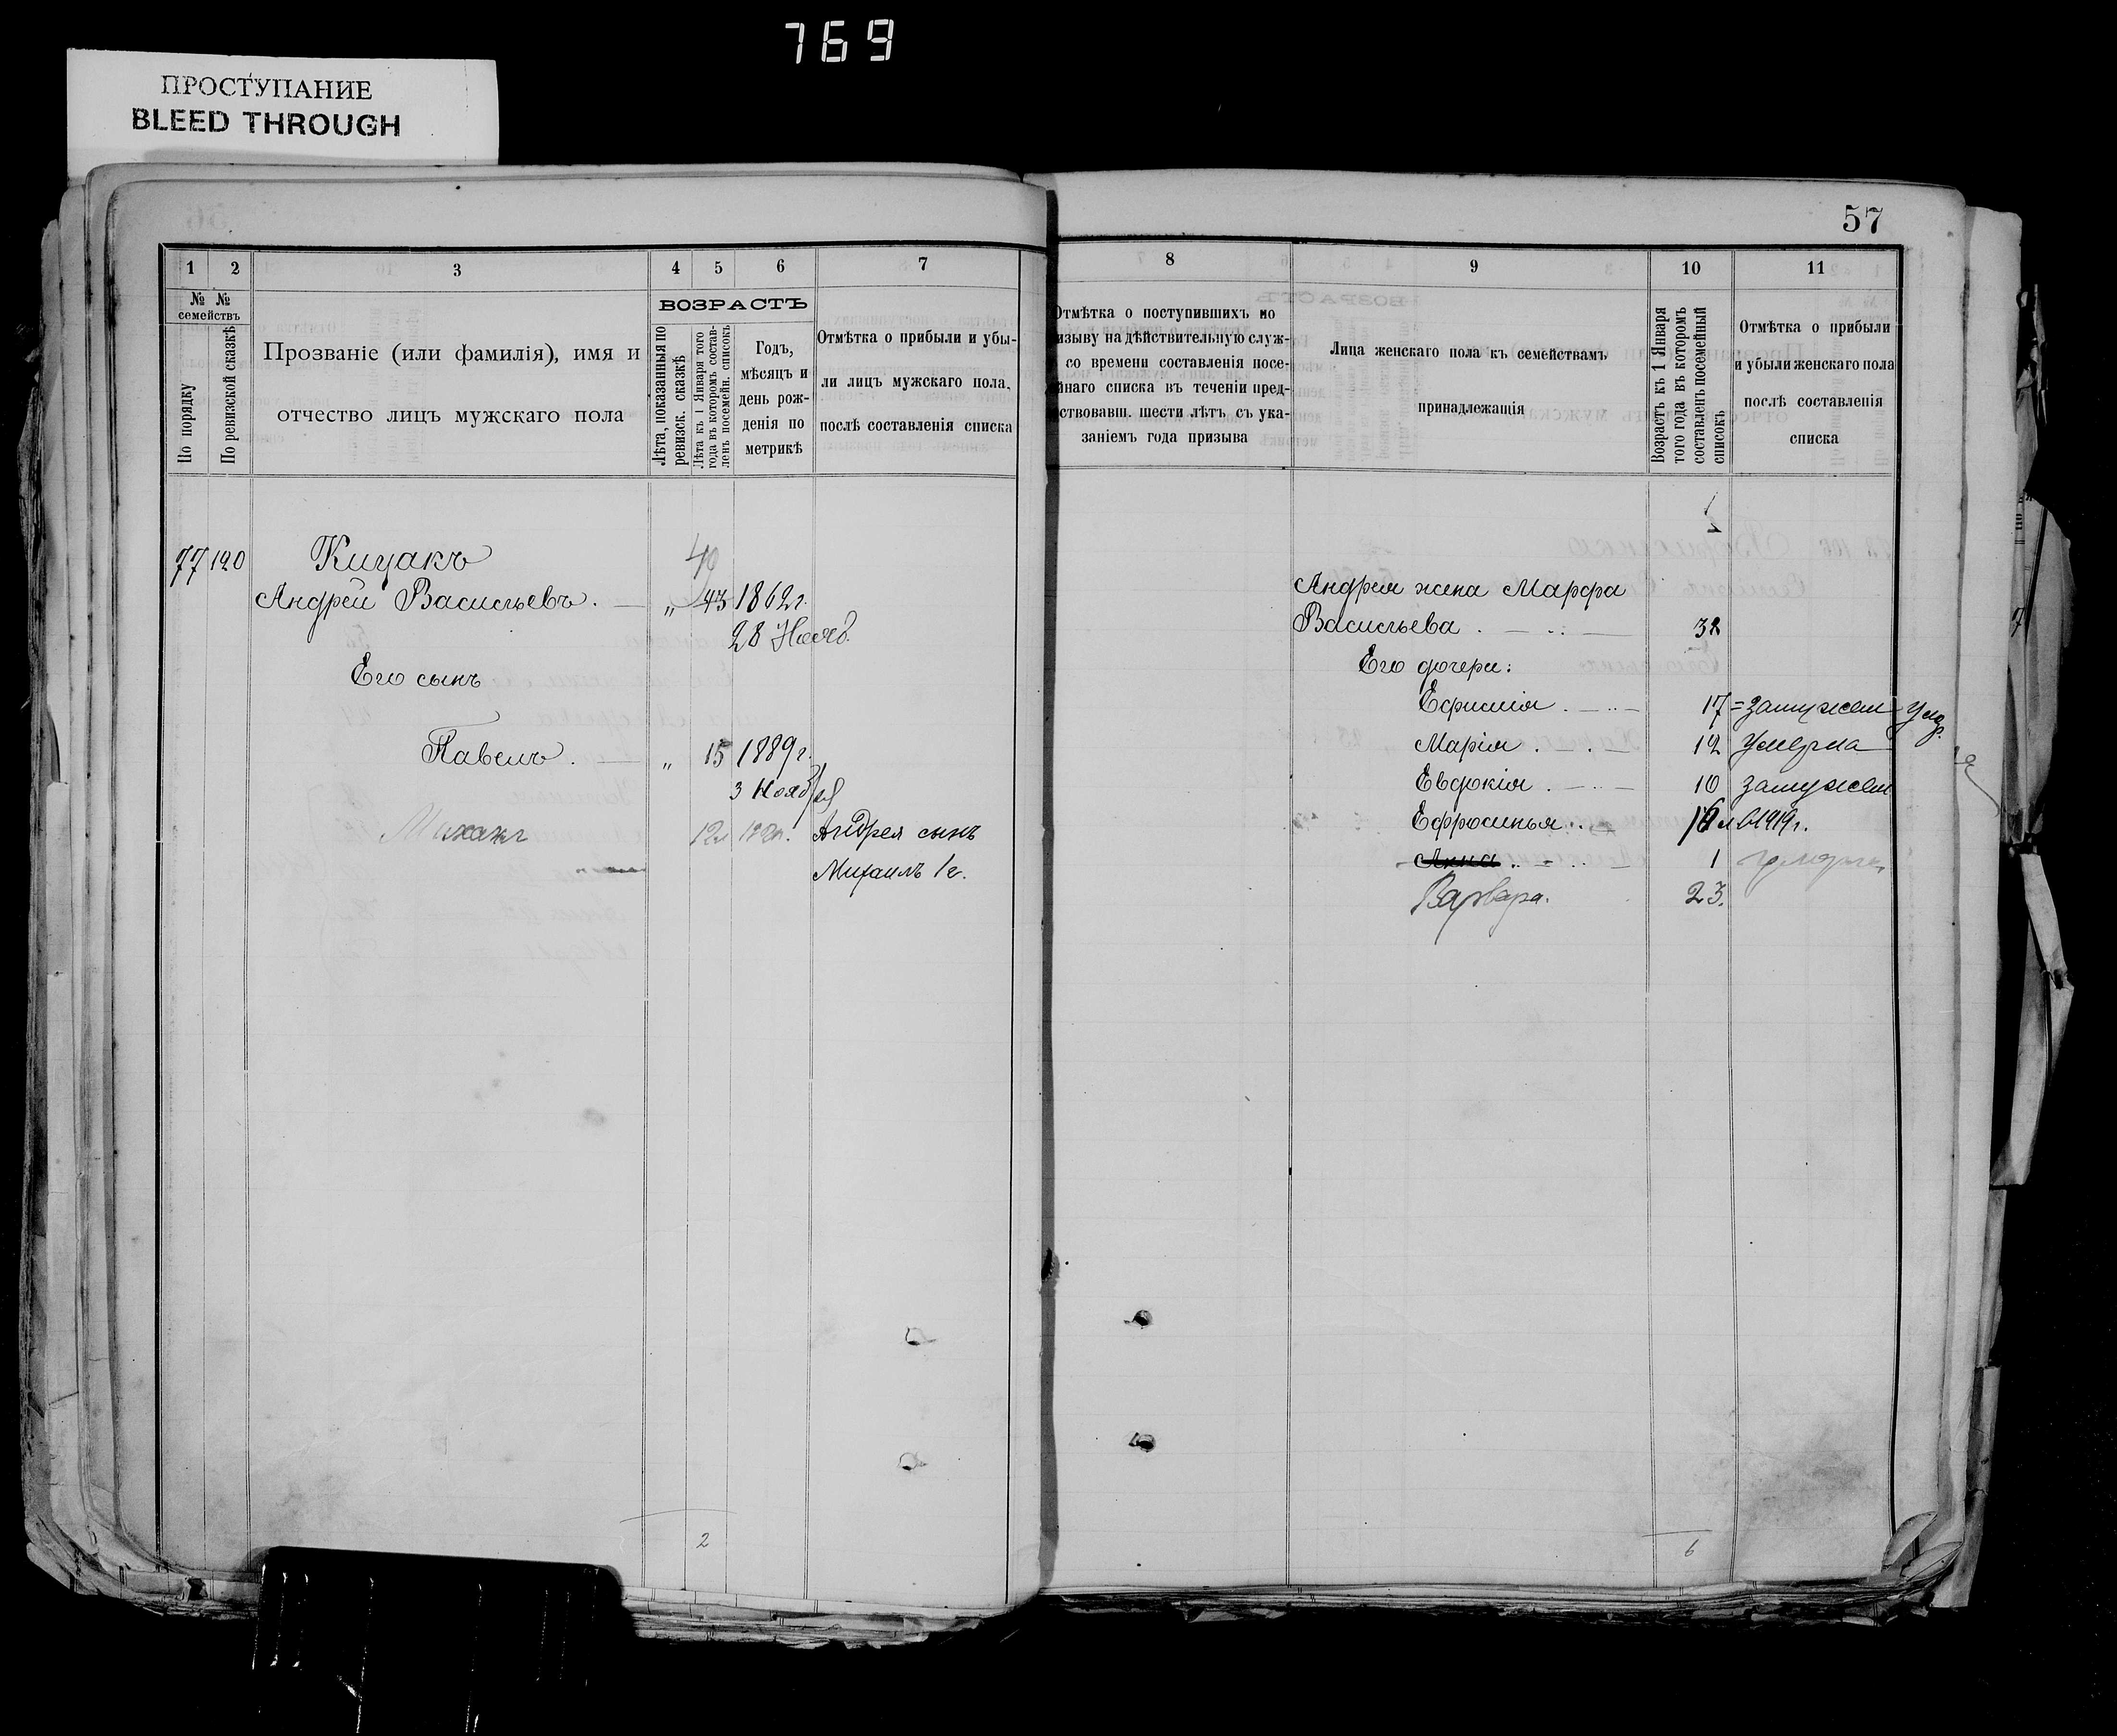 769
ПРОСТУПАНИЕ
BLEED THROUGH
57
1 2 3 4 5 6 7
№ № семействъ
По порядку
По ревизской сказкѣ
Прозваніе (или фамилія), имя и
отчество лицъ мужскаго пола
ВОЗРАСТЪ
Лѣта, показанныя по
ревизск. сказкѣ
Лѣта къ 1 Января того
года въ которомъ состав-
ленъ посемейн. списокъ
Годъ,
мѣсяцъ и
день рож-
денія по
метрикѣ
Отмѣтка о прибыли и убы-
ли лицъ мужскаго пола,
послѣ составленія списка
77 120 Кицакъ 40
Андрей Васильевъ. — „ 43 1862г.
28 Нояб.
Его сынъ
Павелъ. — „ 15 1889г.
3 Ноября
12л Андрея сынъ
Михаилъ 1г.
2
8 9 10 11
Отмѣтка о поступившихъ по
изыву на дѣйствительную служ-
со времени составленія посе-
йнаго списка въ теченіи пред-
ствовавш. шести лѣтъ съ ука-
заніемъ года призыва
Лица женскаго пола къ семействамъ
принадлежащія
Возрастъ къ 1 Января
того года въ которомъ
составленъ посемейный
списокъ
Отмѣтка о прибыли
и убыли женскаго пола
послѣ составленія
списка
Андрея жена Марфа
Васильева . — 32
Его дочери:
Ефимія . — 17 = замужем
Марія . — 12 Умерла
Евдокія . — 10 замужем
Ефросинья . в 1919г.
Анна . — 1
Варвара. 23.
6